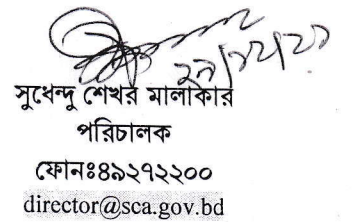 ২৯/১২/২১
সুধেন্দু শেখর মালাকার
পরিচালক
ফোনঃ৪৯২৭২২০০
director@sca.gov.bd